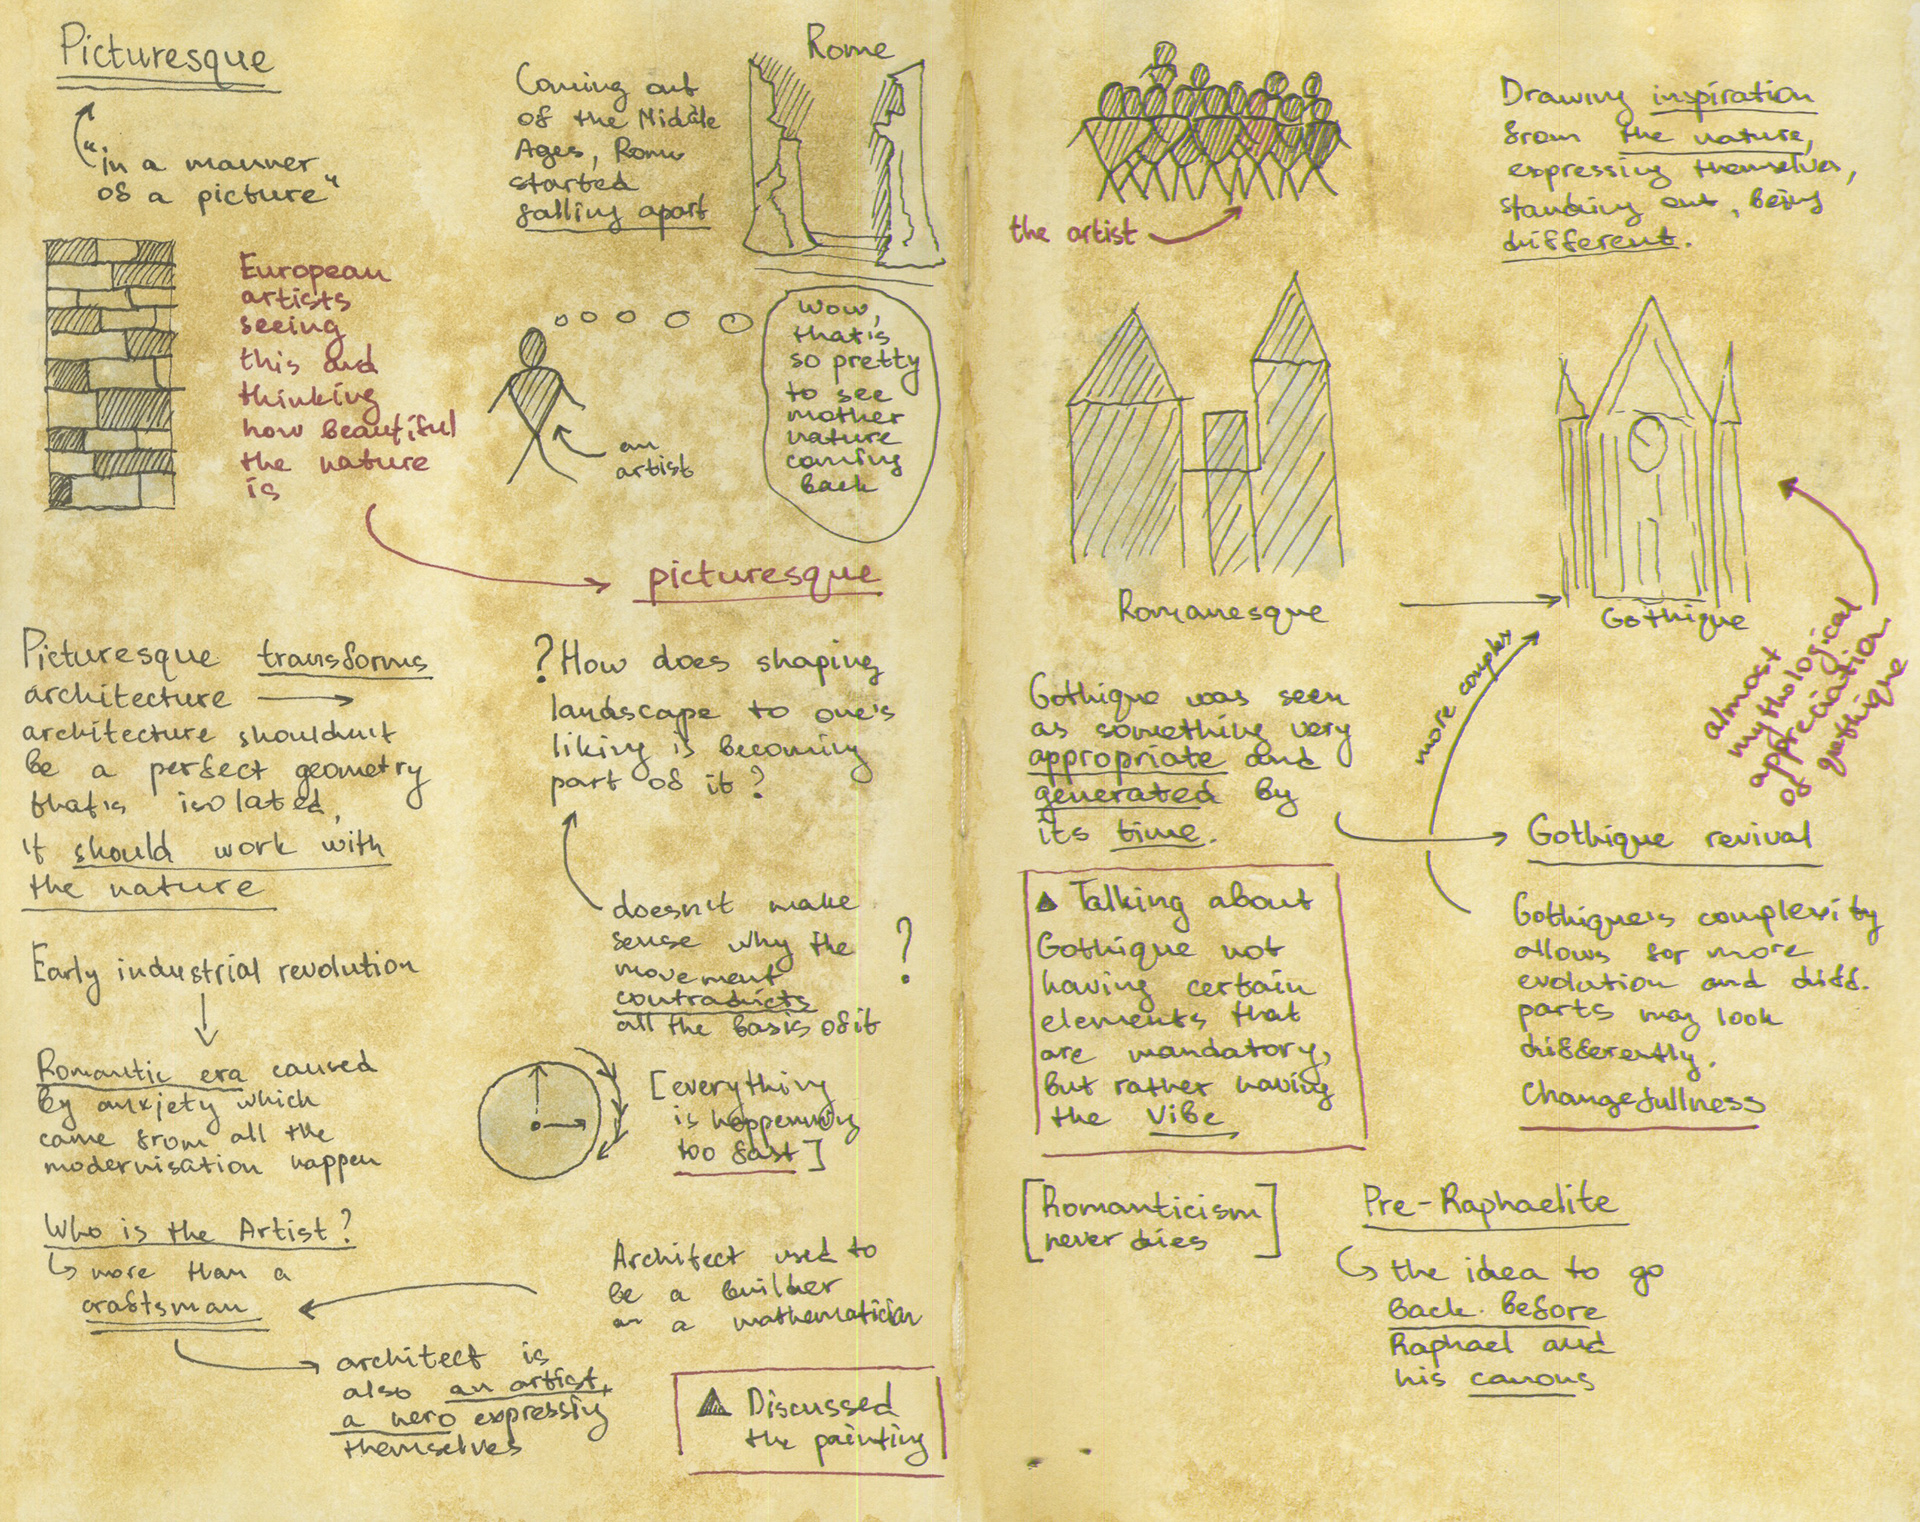 Picturesque
"in a manner
of a picture"
Coming out
of the Middle
Ages, Rome
started
falling apart
Rome
European
artists
seeing
this and
thinking
how beautiful
the nature
is
an
artist
Wow,
that's
so pretty
to see
mother
nature
coming
back
picturesque
Picturesque transforms
architecture
architecture shouldn't
be a perfect geometry
that's isolated,
it should work with
the nature
? How does shaping
landscape to one's
liking is becoming
part of it?
doesn't make
sense why the
movement
contradicts
all the basis of it
?
Early industrial revolution
Romantic era caused
by anxiety which
came from all the
modernisation happen
[everything
is happening
too fast]
Who is the Artist?
more than a
craftsman
Architect used to
be a builder
or a mathematician
architect is
also an artist,
a hero expressing
themselves
Discussed
the painting
the artist
Drawing inspiration
from the nature,
expressing themselves,
standing out, being
different.
Romanesque
Gothique
more complex
almost
mythological
appreciation
of gothique
Gothique was seen
as something very
appropriate and
generated by
its time.
Gothique revival
Talking about
Gothique not
having certain
elements that
are mandatory,
but rather having
the vibe
Gothique's complexity
allows for more
evolution and diff.
parts may look
differently.
Changefullness
[Romanticism
never dies]
Pre-Raphaelite
the idea to go
back before
Raphael and
his canons